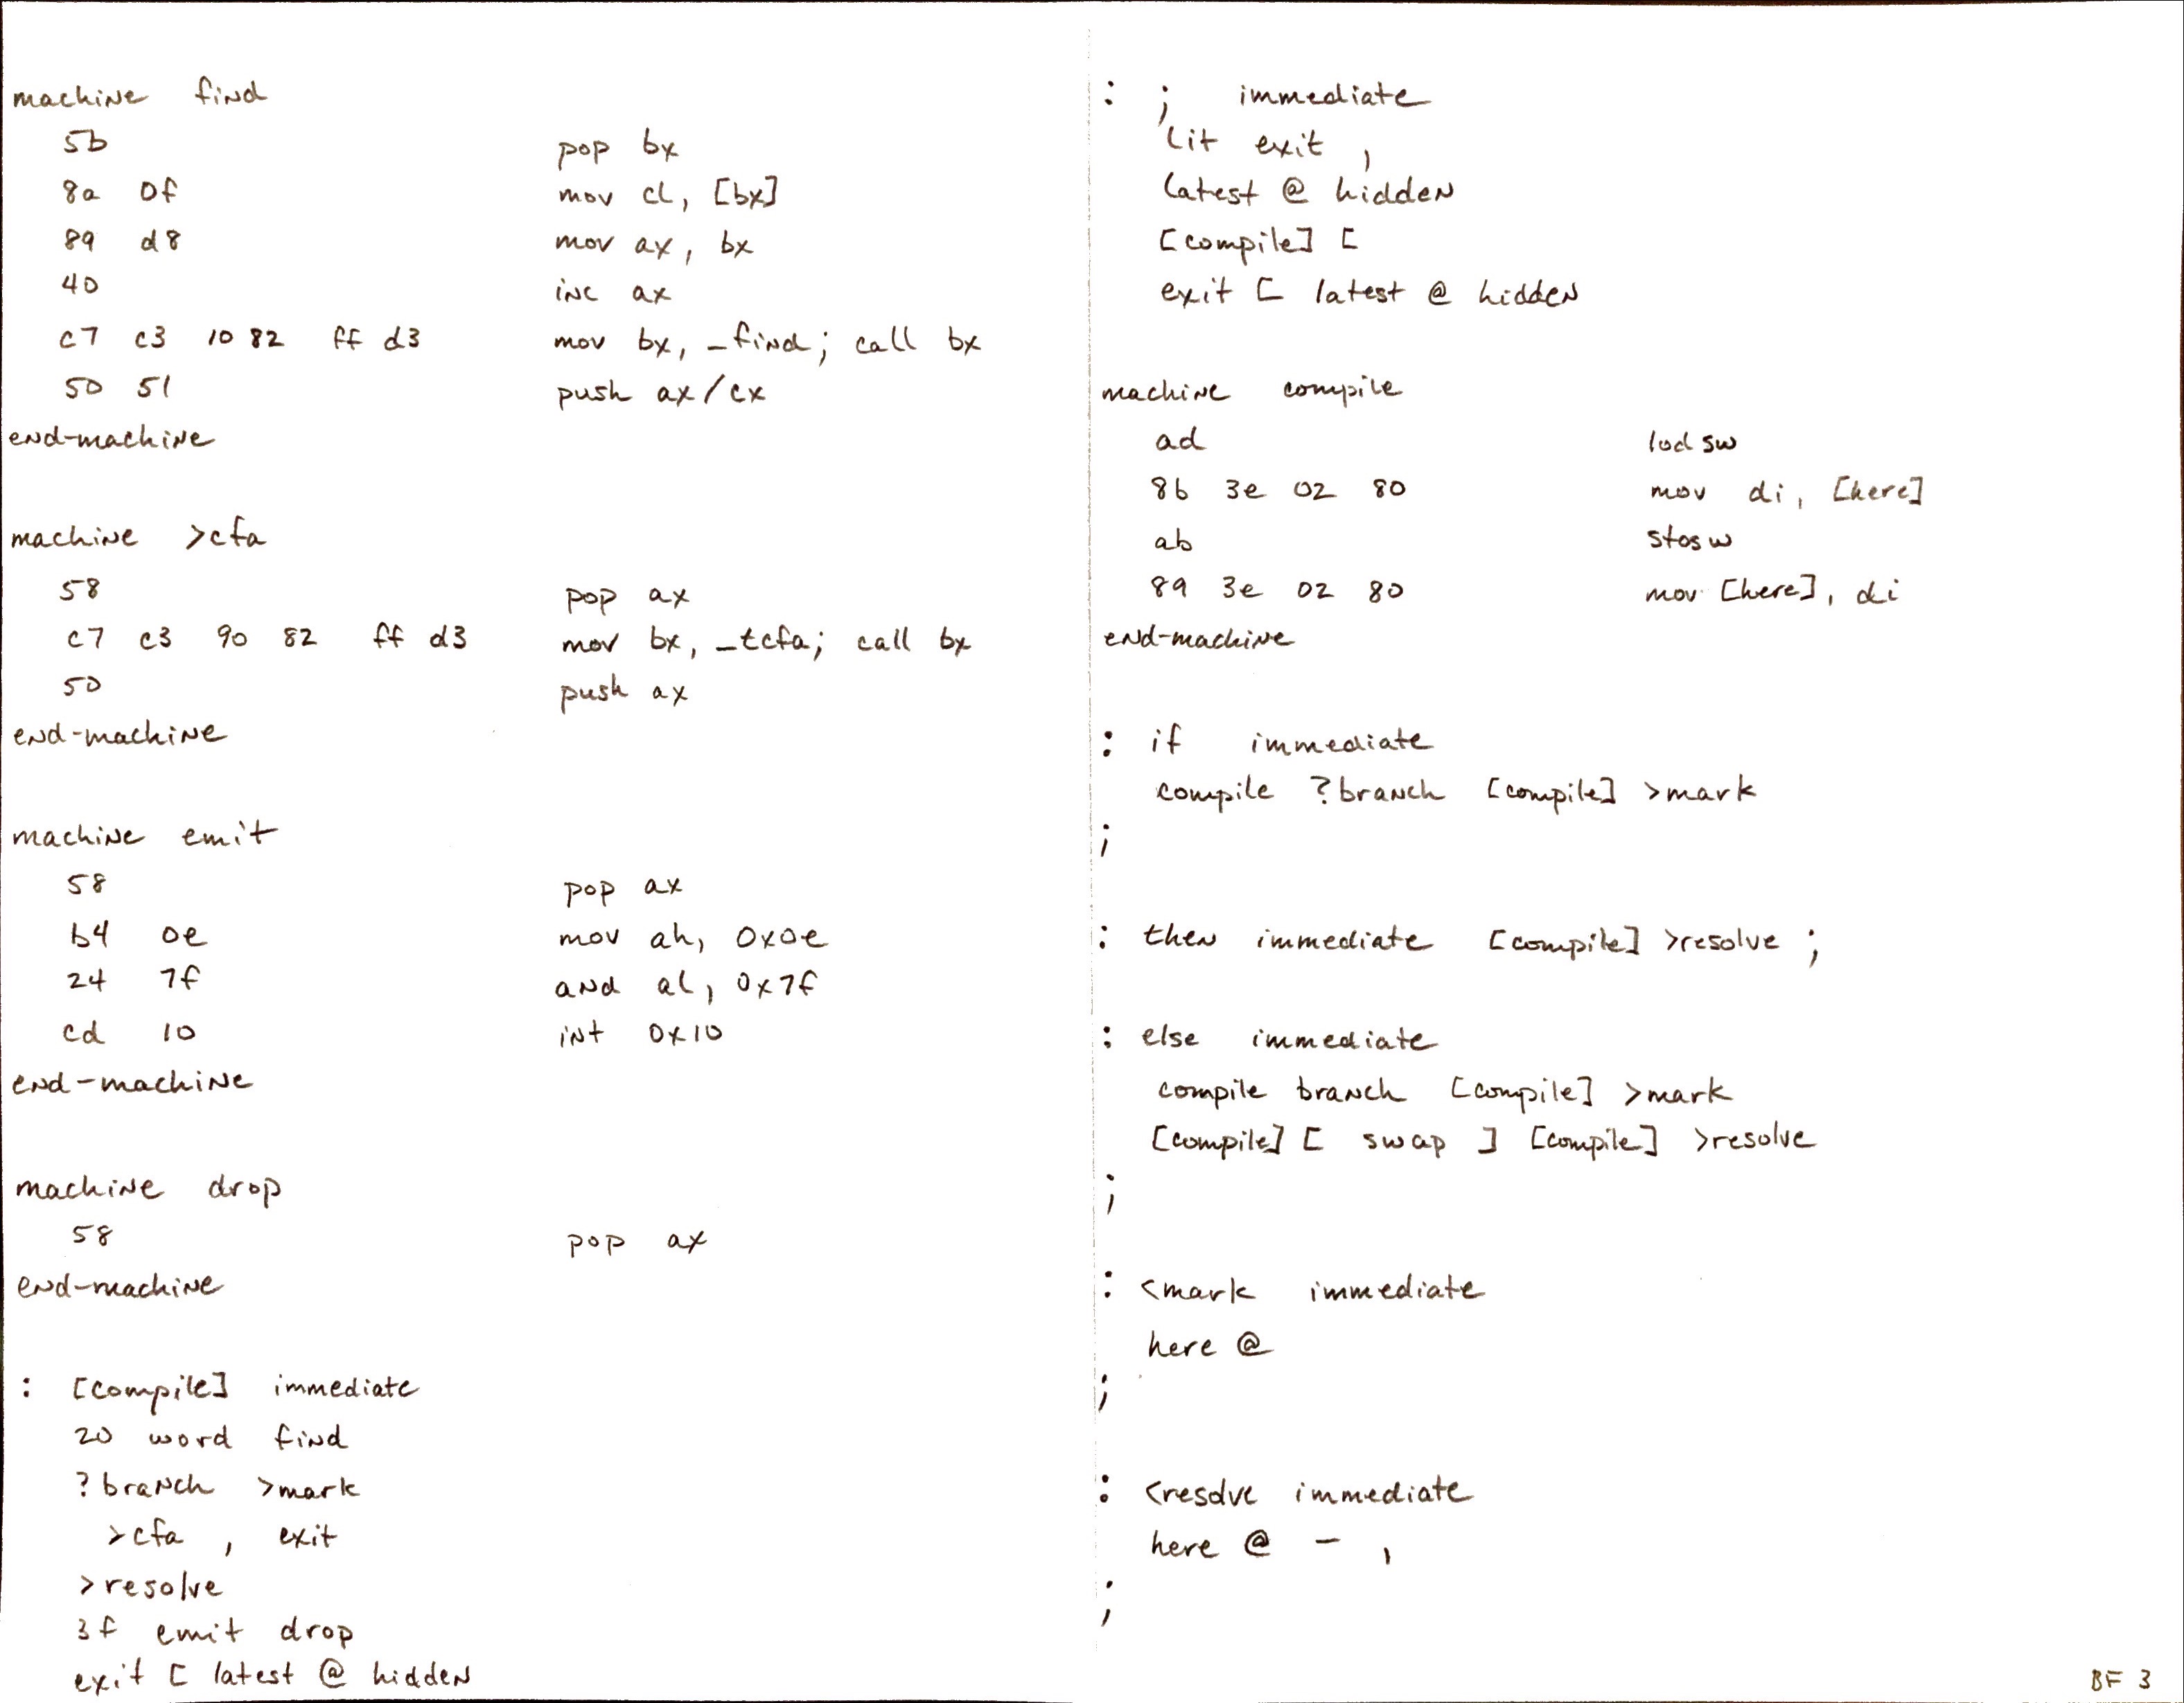 machine find
5b pop bx
8a 0f mov cl, [bx]
89 d8 mov ax, bx
40 inc ax
c7 c3 10 82 ff d3 mov bx, _find; call bx
50 51 push ax/cx
end-machine
machine >cfa
58 pop ax
c7 c3 90 82 ff d3 mov bx, _tcfa; call bx
50 push ax
end-machine
machine emit
58 pop ax
b4 0e mov ah, 0x0e
24 7f and al, 0x7f
cd 10 int 0x10
end-machine
machine drop
58 pop ax
end-machine
: [compile] immediate
20 word find
?branch >mark
>cfa , exit
>resolve
3f emit drop
exit [ latest @ hidden
: ; immediate
lit exit ,
latest @ hidden
[compile] [
exit [ latest @ hidden
machine compile
ad lodsw
8b 3e 02 80 mov di, [here]
ab stosw
89 3e 02 80 mov [here], di
end-machine
: if immediate
compile ?branch [compile] >mark
;
: then immediate [compile] >resolve ;
: else immediate
compile branch [compile] >mark
[compile] [ swap ] [compile] >resolve
;
: <mark immediate
here @
;
: <resolve immediate
here @ - ,
;
BF 3